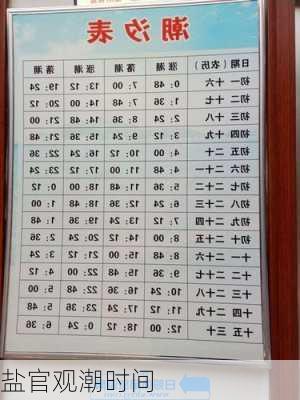 潮汐表
日期（农历） 涨潮 落潮 涨潮 落潮
初一 十六 0：48 7：00 13：12 19：24
初二 十七 1：36 7：48 14：00 20：12
初三 十八 2：24 8：36 14：48 21：00
初四 十九 3：12 9：24 15：36 21：48
初五 二十 4：00 10：12 16：24 22：36
初六 二十一 4：48 11：00 17：12 23：24
初七 二十二 5：36 11：48 18：00 0：12
初八 二十三 6：24 12：36 18：48 1：00
初九 二十四 7：12 13：24 19：36 1：48
初十 二十五 8：00 14：12 20：24 2：36
十一 二十六 8：48 15：00 21：12 3：24
十二 二十七 9：36 15：48 22：00 4：12
十三 二十八 10：24 16：36 22：48 5：00
十四 二十九 11：12 17：24 23：36 5：48
十五 三十 12：00 18：12 0：24 6：36
盐官观潮时间